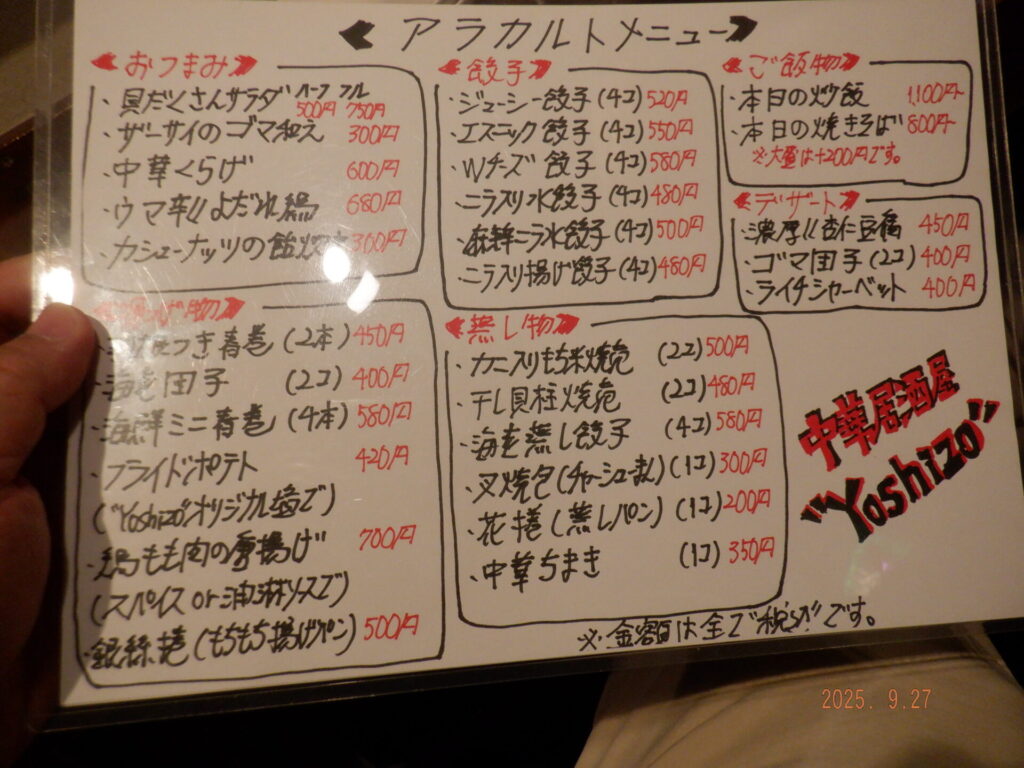 アラカルトメニュー
おつまみ
・具だくさんサラダ ハーフ 500円 フル 750円
・ザーサイのゴマ和え 300円
・中華くらげ 600円
・ウマ辛!!よだれ鶏 680円
・カシューナッツの飴炊き 300円
揚げ物
つき春巻 (2本) 450円
・海老団子 (2コ) 400円
・海鮮ミニ春巻 (4本) 580円
・フライドポテト 420円
("Yoshizo"オリジナル塩で)
・鶏もも肉の唐揚げ 700円
(スパイス or 油淋ソースで)
・銀絲捲 (もちもち揚げパン) 500円
餃子
・ジューシー餃子 (4コ) 520円
・エスニック餃子 (4コ) 550円
・Wチーズ餃子 (4コ) 580円
・ニラ入り水餃子 (4コ) 480円
・麻辣ニラ水餃子 (4コ) 500円
・ニラ入り揚げ餃子 (4コ) 480円
蒸し物
・カニ入りもち米焼売 (2コ) 500円
・干し貝柱焼売 (2コ) 480円
・海老蒸し餃子 (4コ) 580円
・叉焼包 (チャーシューまん) (1コ) 300円
・花捲 (蒸しパン) (1コ) 200円
・中華ちまき (1コ) 350円
ご飯物
・本日の炒飯 1,100円
・本日の焼きそば 800円
※大盛は+200円です。
デザート
・濃厚!!杏仁豆腐 450円
・ゴマ団子 (2コ) 400円
・ライチシャーベット 400円
中華居酒屋
"Yoshizo"
※金額は全て税込です。
2025. 9.27